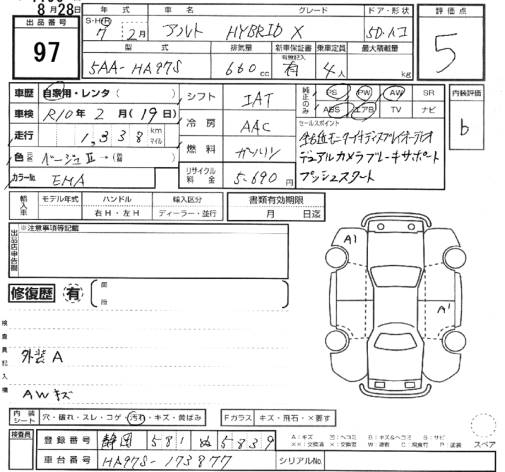 8月28日
出品番号
97
年式 車名 グレード ドア・形状
S・H・R
7年 2月 アルト HYBRID X 5D.ハコ
型式 排気量 新車保証書 乗車定員 最大積載量
有無記入
5AA-HA97S 660cc 有 4人 kg
評価点
5
車歴 自家用・レンタ( )
車検 R10年 2月(19日)
走行 1,338 km マイル
色 ベージュⅡ→(替 )
カラーNo. EMA
シフト IAT
冷房 AAC
燃料 ガソリン
リサイクル料金 5,690円
純正のみ PS PW AW SR
ABS エアB TV ナビ
セールスポイント
全方位モニター付きディスプレイオーディオ
デュアルカメラブレーキサポート
プッシュスタート
内装評価
b
輸入車 モデル年式 ハンドル 輸入区分
右H・左H ディーラー・並行
書類有効期限
月 日迄
出品店申告欄
※注意事項等記載
修復歴 有
箇所
検査員記入欄
外装A
AWキズ
A1
A1
内装シート 穴・破れ・スレ・コゲ・汚れ・キズ・黄ばみ
Fガラス キズ・飛石・×要す
スペア
検査員
登録番号 静岡 581 ぬ 5839
車台番号 HA97S-173877
シリアルNo.
A:キズ U:ヘコミ B:キズ&ヘコミ S:サビ
××:交換済 X:交換要 W:波教 C:腐食 P:塗装